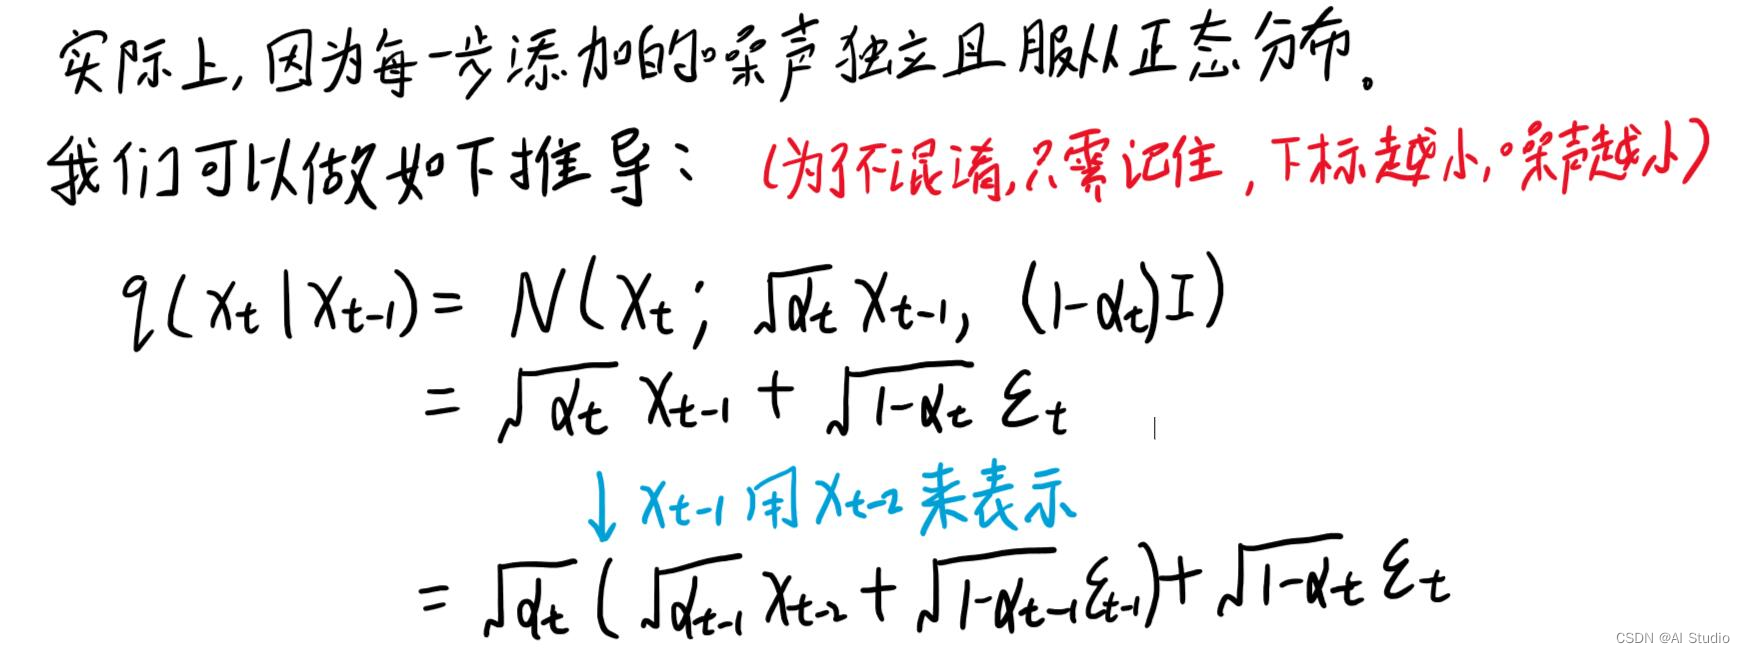 实际上,因为每一步添加的噪声独立且服从正态分布。
我们可以做如下推导: (为了不混淆,只需记住,下标越小,噪声越小)
q(x_t|x_{t-1}) = N(x_t; √α_t x_{t-1}, (1-α_t)I)
= √α_t x_{t-1} + √(1-α_t) ε_t
↓ x_{t-1} 用 x_{t-2} 来表示
= √α_t (√α_{t-1} x_{t-2} + √(1-α_{t-1}) ε_{t-1}) + √(1-α_t) ε_t
CSDN @AI Studio